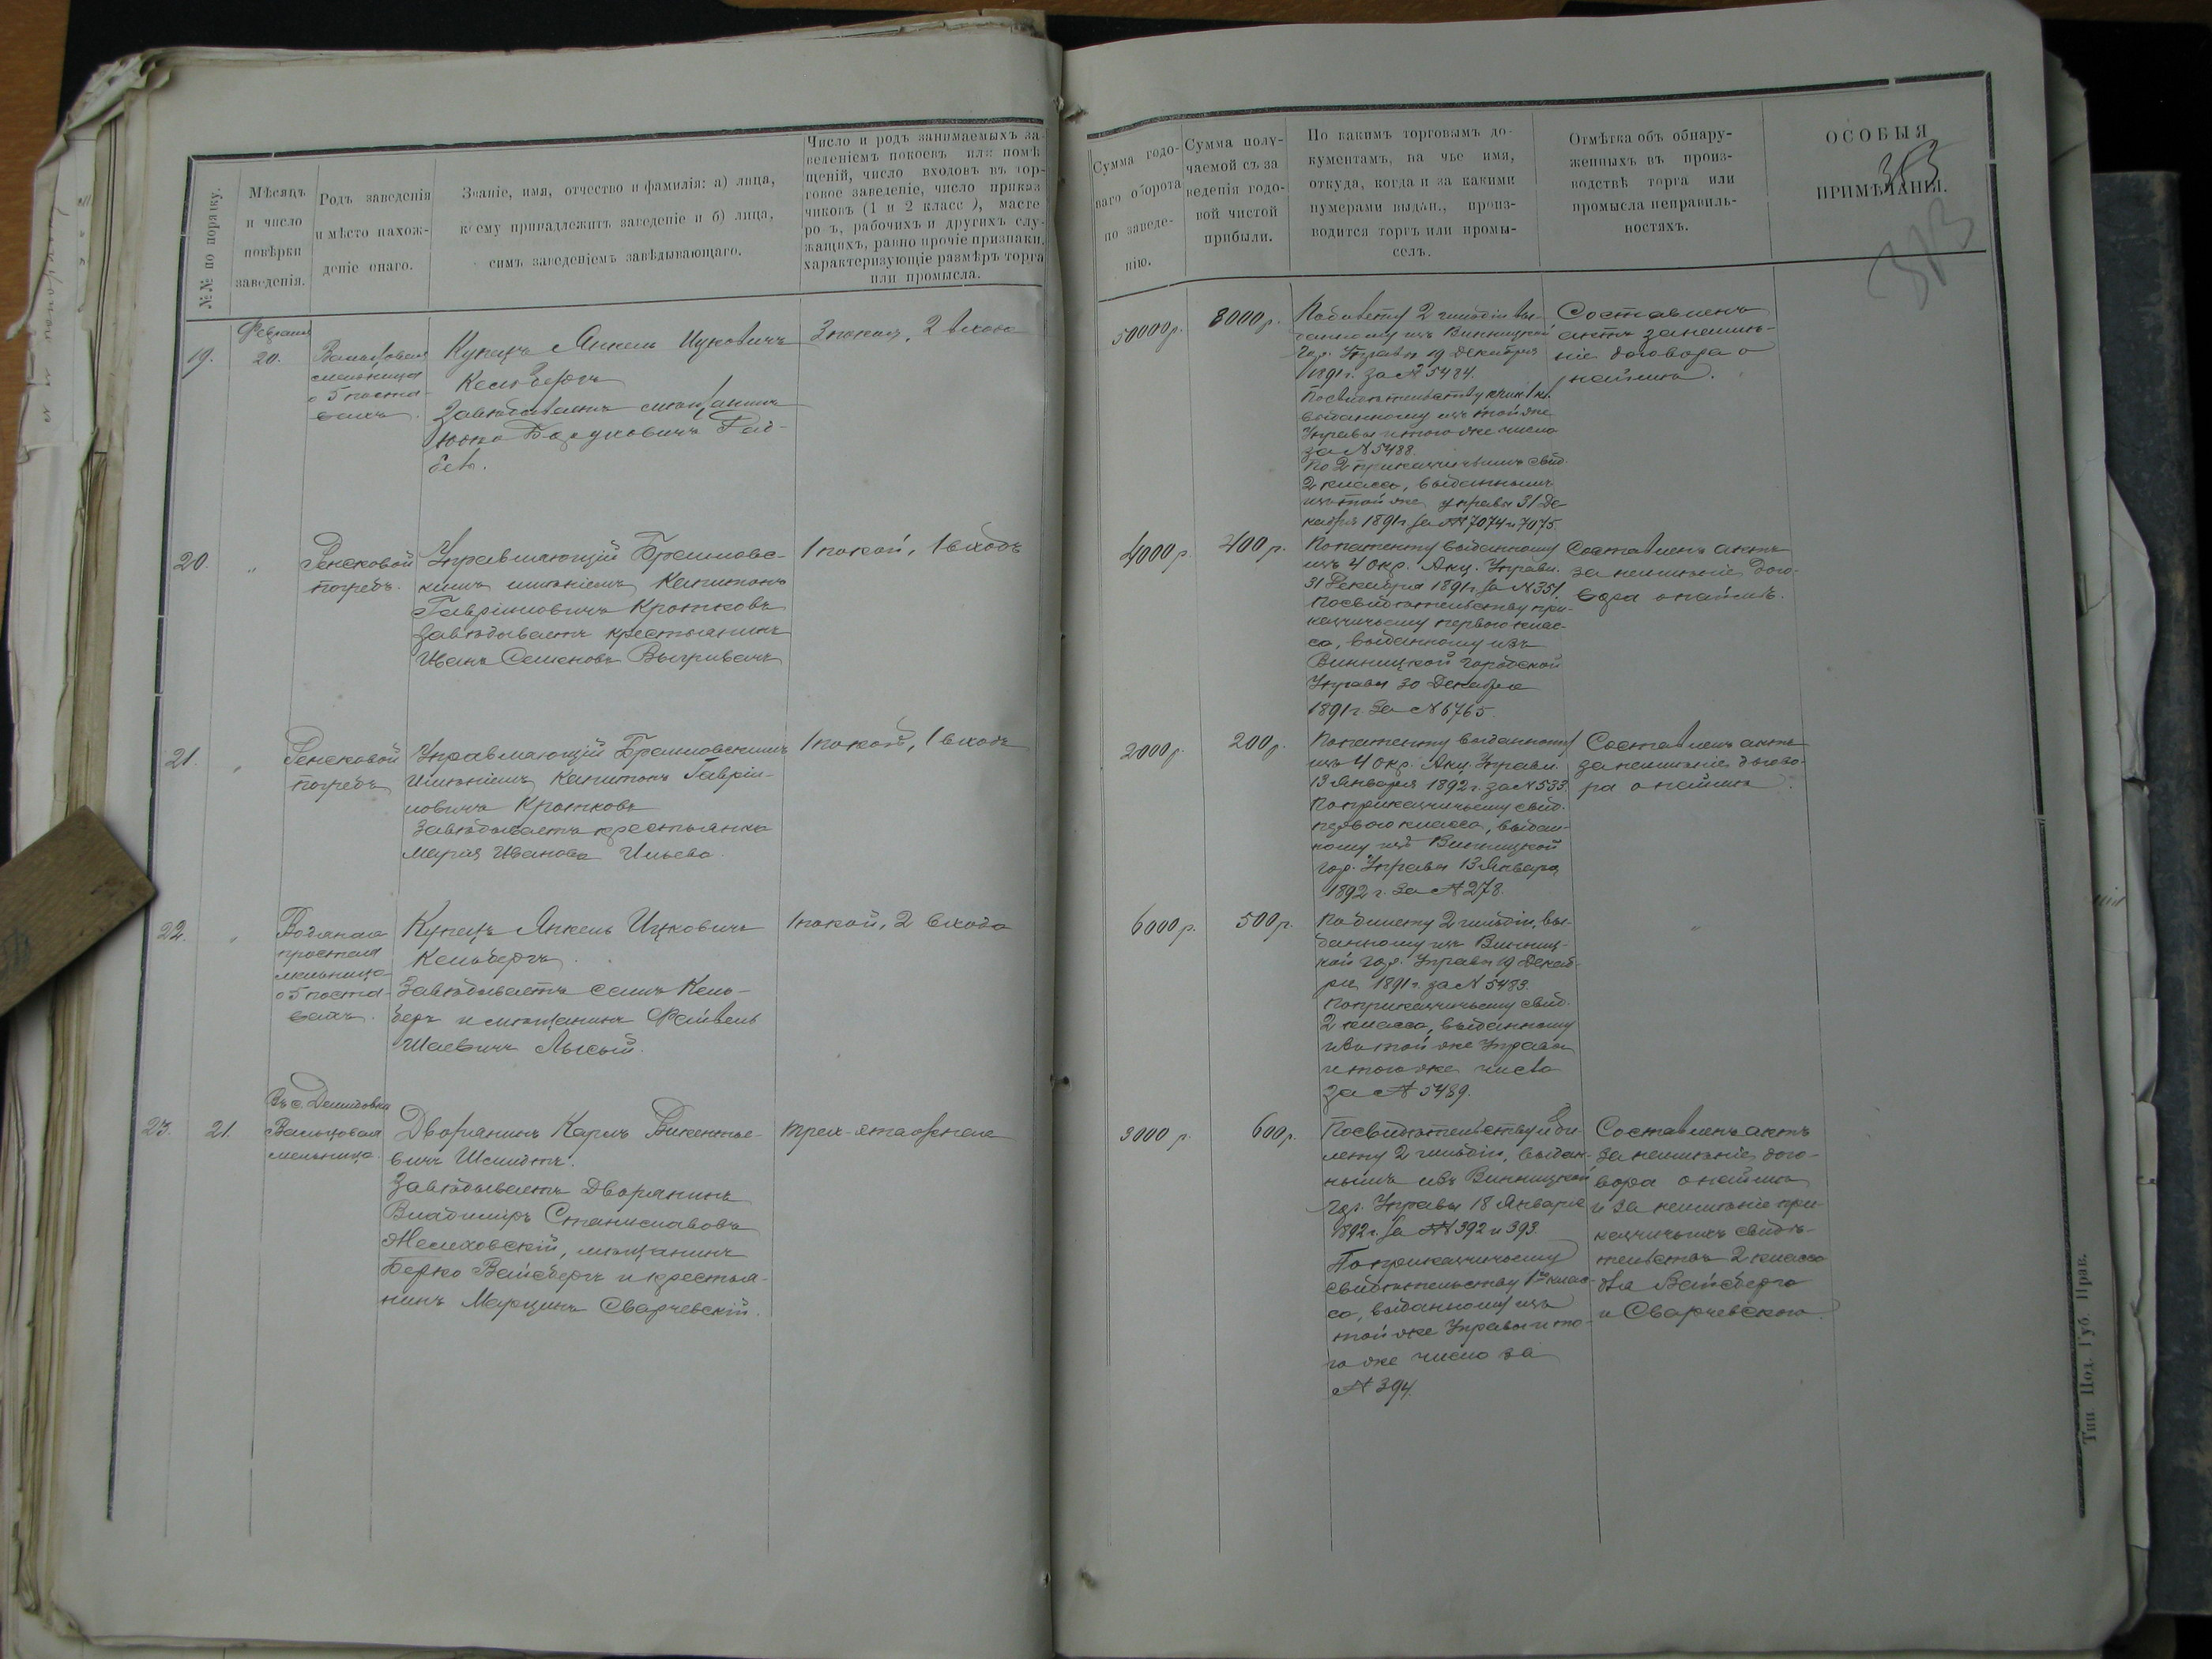 №№ по порядку.
Мѣсяцъ
и число
повѣрки
заведенія.
Родъ заведенія
и мѣсто нахож-
деніе онаго.
Званіе, имя, отчество и фамилія: а) лица,
коему принадлежитъ заведеніе и б) лица,
симъ заведеніемъ завѣдывающаго.
Число и родъ занимаемыхъ за-
веденіемъ покоевъ или помѣ
щеній, число входовъ въ тор-
говое заведеніе, число приказ
чиковъ (1 и 2 класс), масте
ро ъ, рабочихъ и другихъ слу-
жащихъ, равно прочіе признаки,
характеризующіе размѣръ торга
или промысла.
Сумма годо-
ваго оборота
по заведе-
нію.
Сумма полу-
чаемой съ за
веденія годо-
вой чистой
прибыли.
По какимъ торговымъ до-
кументамъ, на чье имя,
откуда, когда и за какими
нумерами выдан., произ-
водится торгъ или промы-
селъ.
Отмѣтка объ обнару-
женныхъ въ произ-
водствѣ торга или
промысла неправиль-
ностяхъ.
ОСОБЫЯ
ПРИМѢЧАНІЯ.
313
313
19.
Февраля
20.
Вальцовая
мельница
о 5 поста-
вахъ.
Купецъ Янкель Ицковичъ
Кельбергъ
Завѣдываетъ мѣщанинъ
3 покоя, 2 входа
50000 р.
8000 р.
По билету 2 гильдіи вы-
данному изъ Винницкой
Гор. Управы 19 Декабря
1891 г. за № 5484.
выданному изъ той же
Управы и того же числа
за № 5488.
По 2 приказчичьимъ свид.
2 класса, выданнымъ
изъ той же управы 31 Де-
кабря 1891 г. за №№ 7074 и 7075.
Составленъ
актъ за неимѣ-
ніе договора о
найма.
20.
"
Ренсковой
погребъ.
Управляющій Браиловс-
кимъ имѣніемъ Капитонъ
Гавріиловичъ Кротковъ
Завѣдываетъ крестьянинъ
Иванъ Семеновъ
1 покой, 1 входъ
4000 р.
400 р.
По патенту выданному
изъ 4 Окр. Акц. Управл.
31 Декабря 1891 г. за № 351.
По свидѣтельству при-
казчичьему перваго клас-
са, выданному изъ
Винницкой Городской
Управы 30 Декабря
1891 г. за № 6765.
Составленъ актъ
за неимѣніе дого-
вора о наймѣ.
21.
"
Ренсковой
погребъ
Управляющій Браиловскимъ
Имѣніемъ Капитонъ Гавріи-
ловичъ Кротковъ
Завѣдываетъ крестьянка
Марія Иванова Ильева.
1 покой, 1 входъ
2000 р.
200 р.
По патенту выданному
изъ 4 Окр. Акц. Управл.
13 Января 1892 г. за № 533.
По приказчичьему свид.
перваго класса, выдан-
ному изъ Винницкой
Гор. Управы 13 Января
1892 г. за № 278.
Составленъ актъ
за неимѣніе догово-
ра о найма.
22.
"
Водяная
простая
мельница
о 5 поста-
вахъ.
Купецъ Янкель Ицковичъ
Кельбергъ.
Завѣдываетъ самъ Кель-
бергъ и мѣщанинъ Файвель
Шаевичъ Лысый.
1 покой, 2 входа
6000 р.
500 р.
По билету 2 гильдіи, вы-
данному изъ Винниц-
кой Гор. Управы 19 Декаб-
ря 1891 г. за № 5483.
По приказчичьему свид.
2 класса, выданному
изъ той же Управы
и того же числа
за № 5489.
"
23.
21.
Въ с. Демидовка
Вальцовая
мельница.
Дворянинъ Карлъ Викентье-
вичъ Шмидтъ.
Завѣдываетъ Дворянинъ
Владиміръ Станиславовъ
Желеховскій, мѣщанинъ
Берко Вайсбергъ и крестья-
нинъ Марцинъ Сварчевскій.
Трех-этажная
3000 р.
600 р.
По свидѣтельству и би-
лету 2 гильдіи, выдан-
нымъ изъ Винницкой
Гор. Управы 18 Января
1892 г. за №№ 392 и 393.
По приказчичьему
свидѣтельству 1го клас-
са, выданному изъ
той же Управы и то-
го же число за
№ 394.
Составленъ актъ
за неимѣніе дого-
вора о найма
и за неимѣніе при-
казчичьихъ свидѣ-
тельствъ 2 класса
для Вайсберга
и Сварчевскаго.
Тип. Под. Губ. Прав.